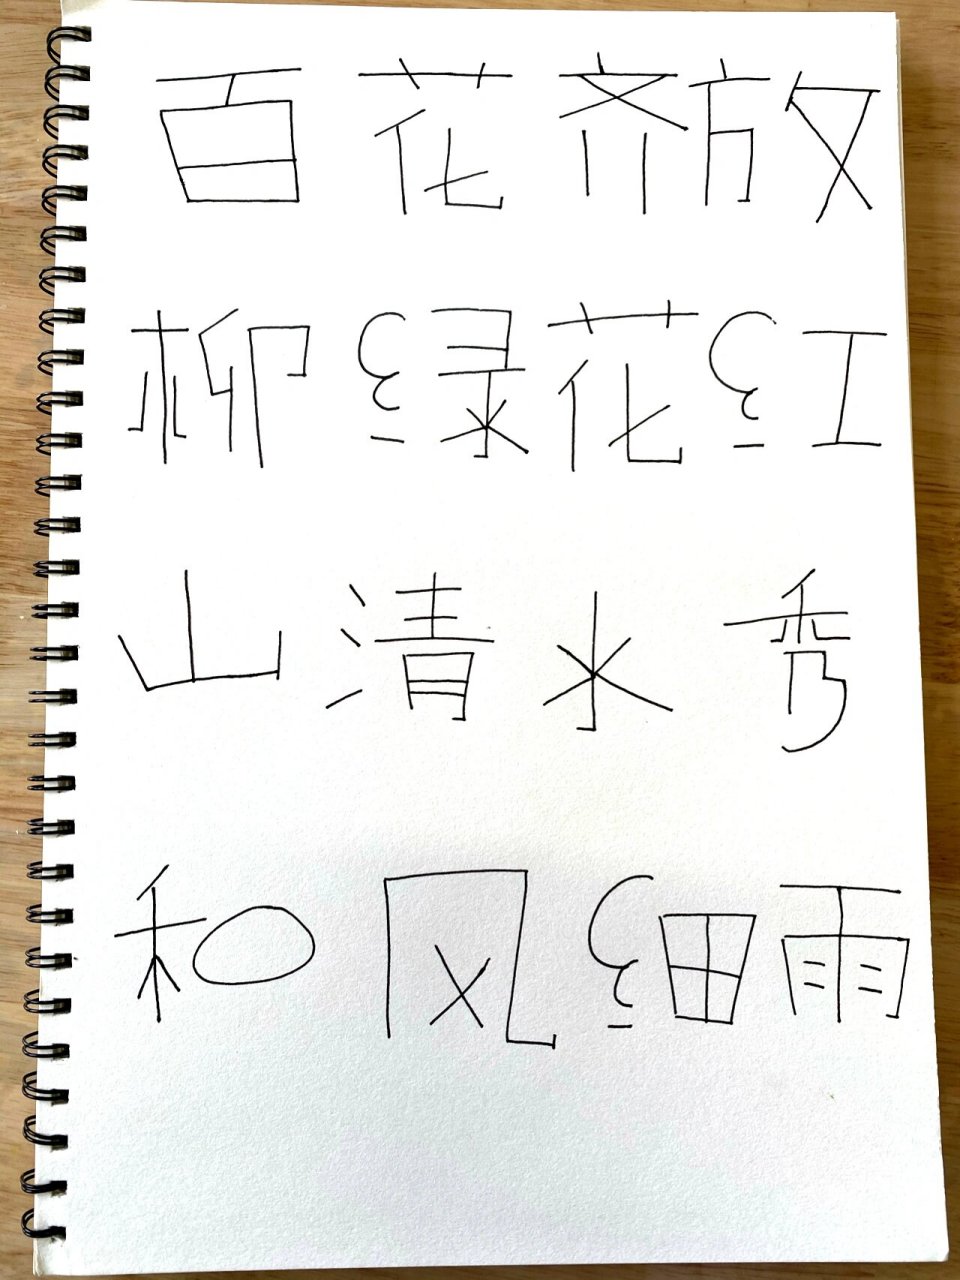 百花齐放
柳绿花红
山清水秀
和风细雨